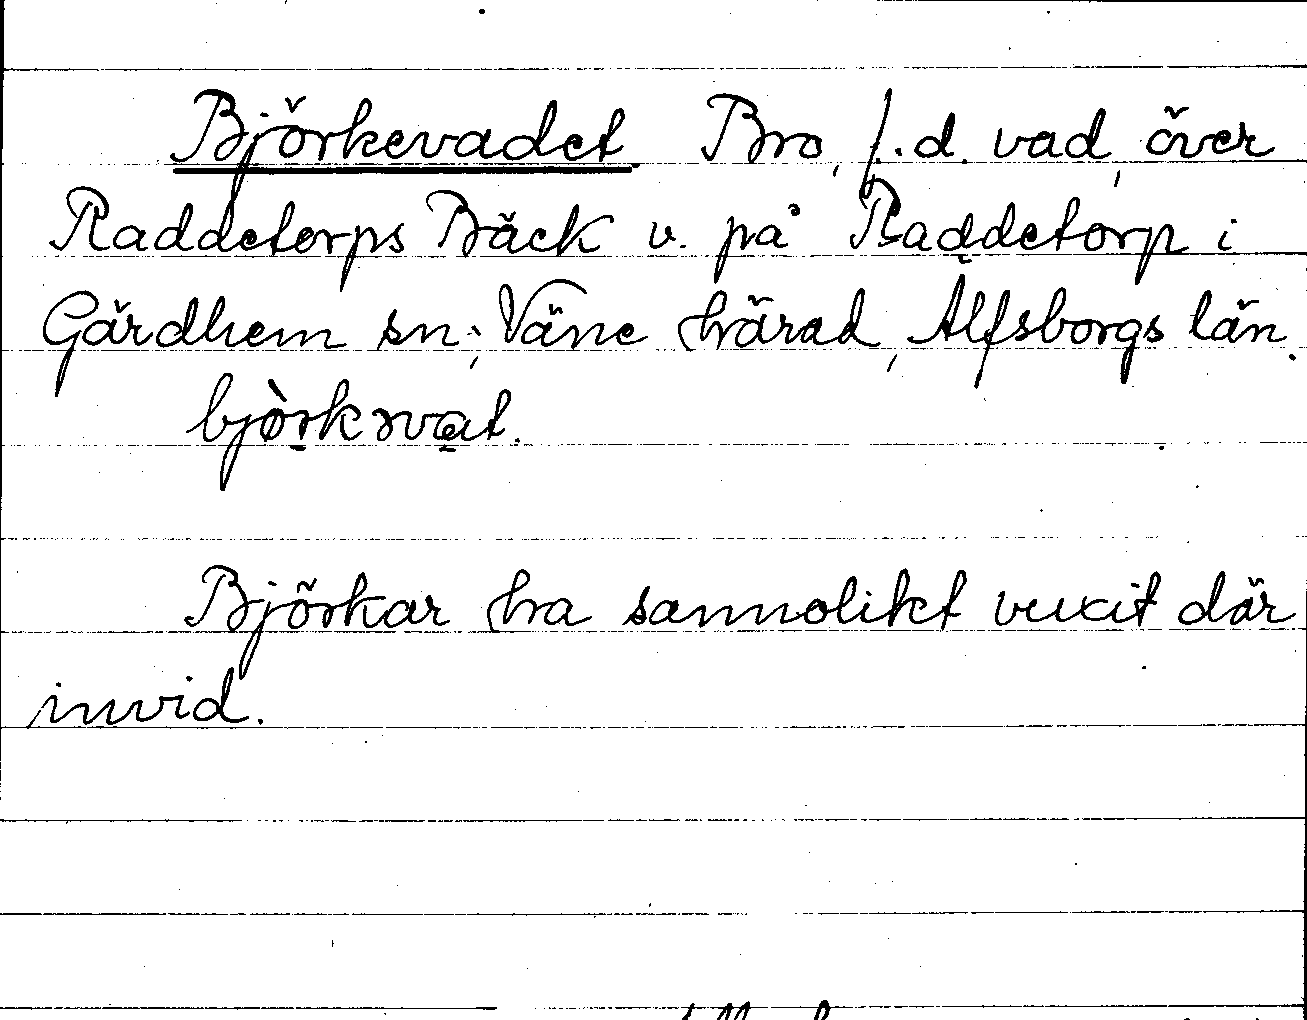 Björkevadet. Bro, f.d. vad, över
Raddetorps Bäck v. på Raddetorp i
Gärdhem sn; Väne härad, Älfsborgs län.
Björkar ha sannolikt vuxit där
invid.